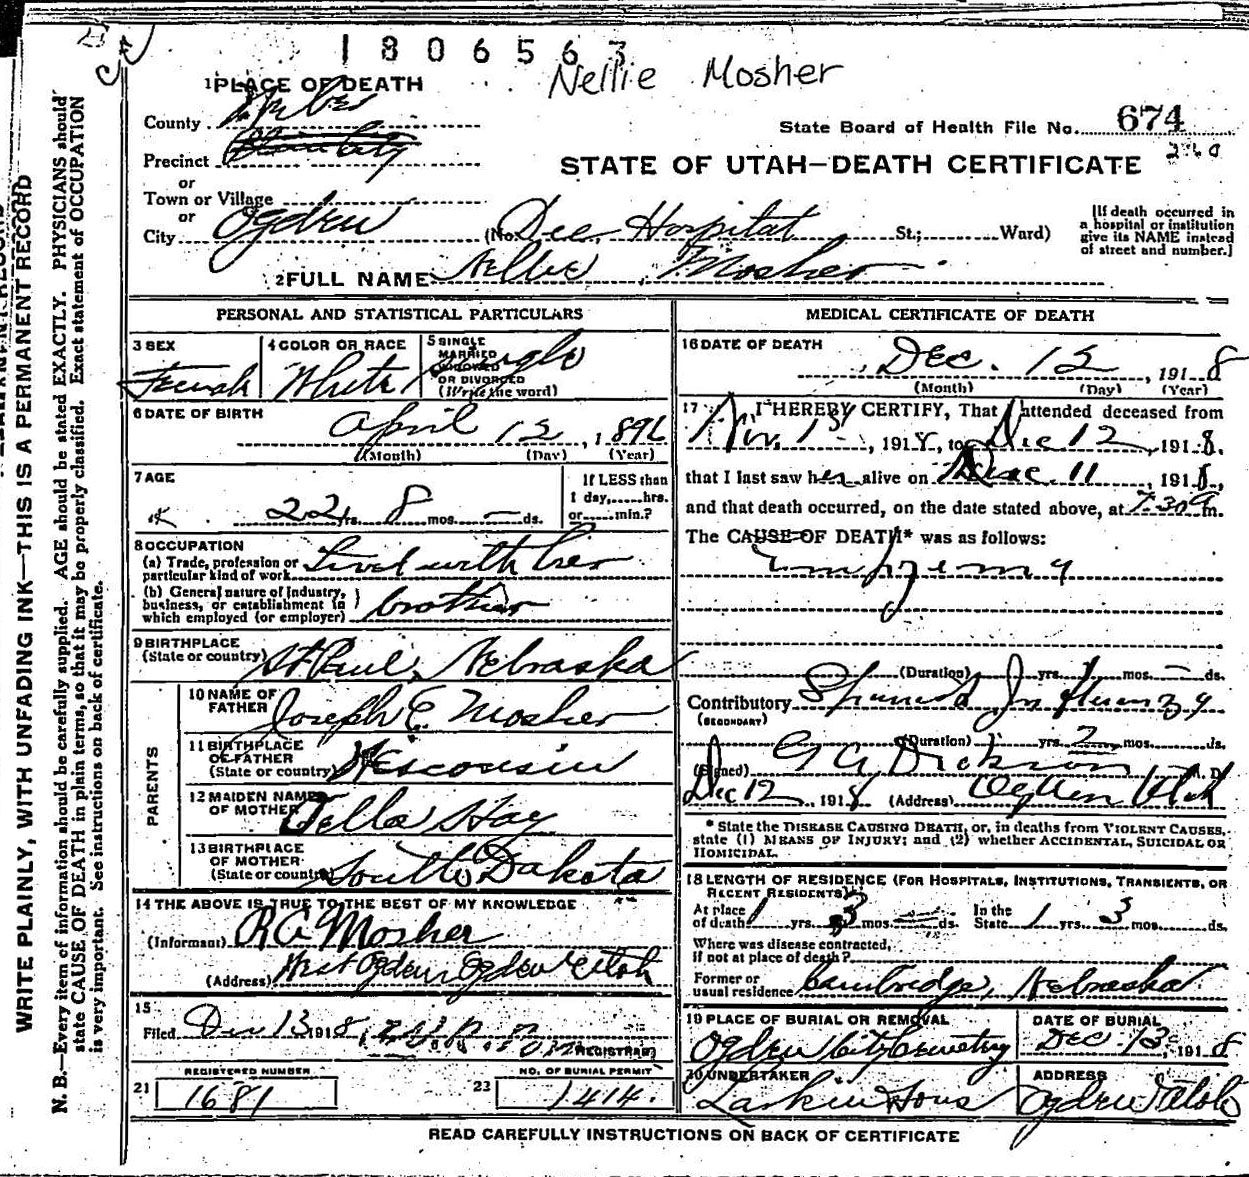 1806563
Nellie Mosher
1 PLACE OF DEATH
County Weber
State Board of Health File No. 674
Precinct
260
STATE OF UTAH—DEATH CERTIFICATE
or
Town or Village
or
City Ogden (No. Dee Hospital St.; Ward)
[If death occurred in a hospital or institution give its NAME instead of street and number.]
2 FULL NAME Nellie Mosher
PERSONAL AND STATISTICAL PARTICULARS
3 SEX Female
4 COLOR OR RACE White
5 SINGLE MARRIED WIDOWED OR DIVORCED (Write the word) Single
6 DATE OF BIRTH
April 12, 1896
(Month) (Day) (Year)
7 AGE
22 yrs. 8 mos. — ds.
If LESS than 1 day, hrs. or min.?
8 OCCUPATION
(a) Trade, profession or particular kind of work Lived with her
(b) General nature of industry, business, or establishment in which employed (or employer) brother
9 BIRTHPLACE
(State or country) St Paul, Nebraska
PARENTS
10 NAME OF FATHER Joseph E. Mosher
11 BIRTHPLACE OF FATHER (State or country) Wisconsin
12 MAIDEN NAME OF MOTHER Della Hay
13 BIRTHPLACE OF MOTHER (State or country) South Dakota
14 THE ABOVE IS TRUE TO THE BEST OF MY KNOWLEDGE
(Informant) R A Mosher
(Address) West Ogden Ogden Utah
15
Filed Dec 13 1918
REGISTRAR
REGISTERED NUMBER
21 1681
NO. OF BURIAL PERMIT
23 1414.
MEDICAL CERTIFICATE OF DEATH
16 DATE OF DEATH
Dec. 12, 1918
(Month) (Day) (Year)
17 I HEREBY CERTIFY, That I attended deceased from
Nov. 1st, 1918, to Dec 12, 1918,
that I last saw her alive on Dec. 11, 1918,
and that death occurred, on the date stated above, at 7:30 a m.
The CAUSE OF DEATH* was as follows:
Empyema
(Duration) yrs. 1 mos. — ds.
Contributory Spanish Influenza
(SECONDARY)
(Duration) yrs. 2 mos. ds.
(Signed) G A Dickson M. D.
Dec 12, 1918 (Address) Ogden Utah
* State the DISEASE CAUSING DEATH, or, in deaths from VIOLENT CAUSES, state (1) MEANS OF INJURY; and (2) whether ACCIDENTAL, SUICIDAL OR HOMICIDAL.
18 LENGTH OF RESIDENCE (FOR HOSPITALS, INSTITUTIONS, TRANSIENTS, OR RECENT RESIDENTS)
At place of death 1 yrs. 3 mos. ds. In the State 1 yrs. 3 mos. ds.
Where was disease contracted, if not at place of death?
Former or usual residence Cambridge, Nebraska
19 PLACE OF BURIAL OR REMOVAL
Ogden City Cemetery
DATE OF BURIAL
Dec. 13, 1918
20 UNDERTAKER
Larkin &Sons
ADDRESS
Ogden Utah
READ CAREFULLY INSTRUCTIONS ON BACK OF CERTIFICATE
WRITE PLAINLY, WITH UNFADING INK—THIS IS A PERMANENT RECORD
N. B.—Every item of information should be carefully supplied. AGE should be stated EXACTLY. PHYSICIANS should
state CAUSE OF DEATH in plain terms, so that it may be properly classified. Exact statement of OCCUPATION
is very important. See instructions on back of certificate.